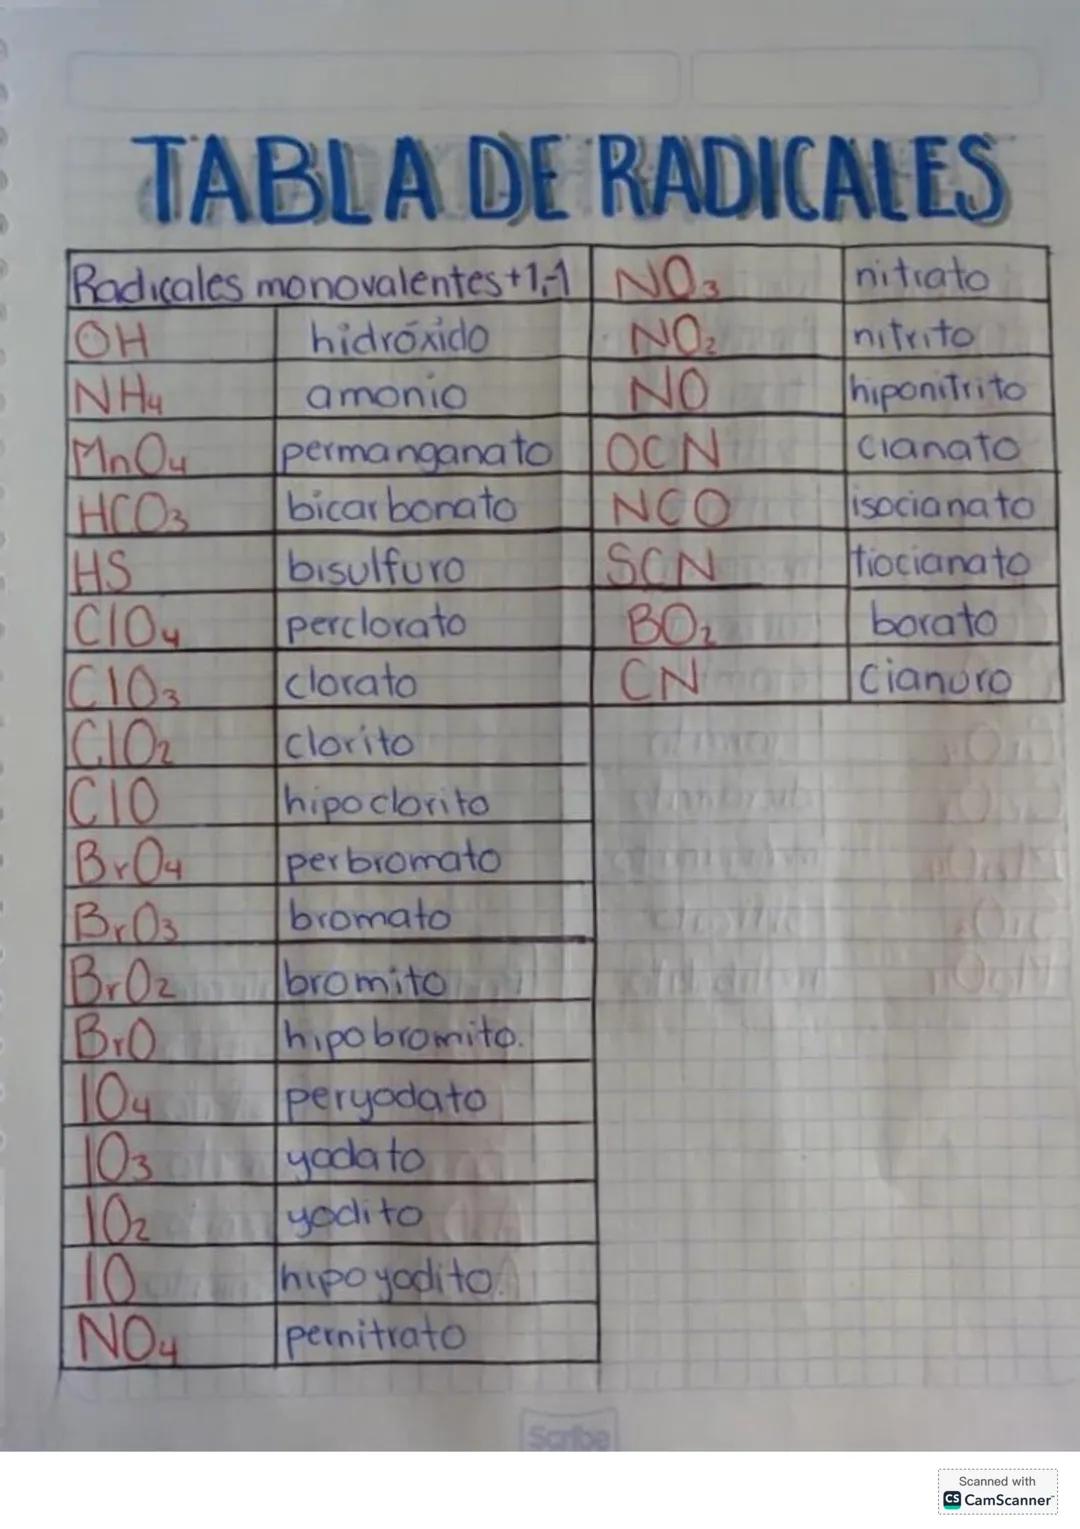 TABLA DE RADICALES
Radicales monovalentes +1,-1
OH hidróxido
NH4 amonio
MnO4 permanganato
HCO3 bicarbonato
HS bisulfuro
ClO4 perclorato
ClO3 clorato
ClO2 clorito
ClO hipoclorito
BrO4 perbromato
BrO3 bromato
BrO2 bromito
BrO hipobromito.
IO4 peryodato
IO3 yodato
IO2 yodito
IO hipoyodito.
NO4 pernitrato
NO3 nitrato
NO2 nitrito
NO hiponitrito
OCN cianato
NCO isocianato
SCN tiocianato
BO2 borato
CN cianuro
Scribe
Scanned with
CS CamScanner